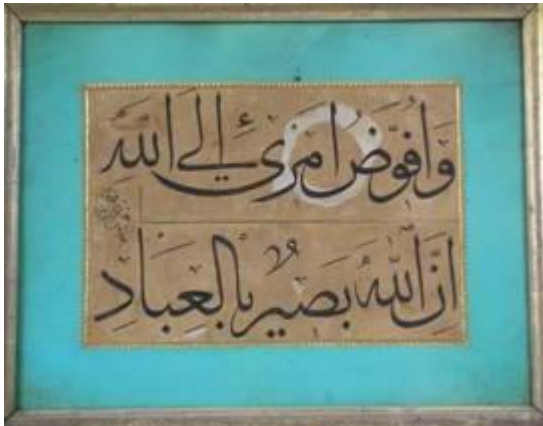 وَاُفَوِّضُ اَمْرِىٓ اِلَي اللّٰهِ
اِنَّ اللّٰهَ بَصِيرٌ بِالْعِبَادِ